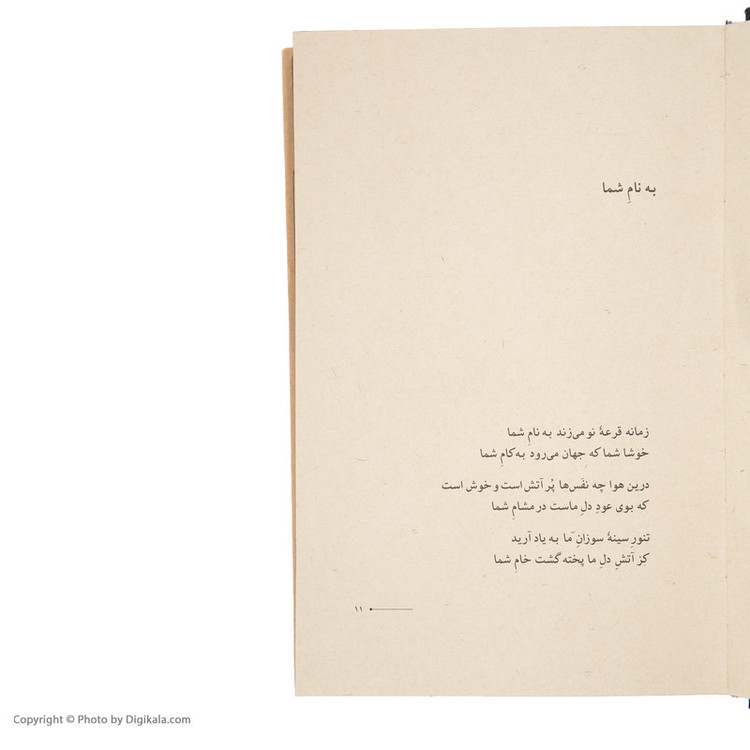 به نامِ شما
زمانه قرعهٔ نو می‌زند به نامِ شما
خوشا شما که جهان می‌رود به‌کامِ شما
درین هوا چه نفَس‌ها پُر آتش است و خوش است
که بوی عودِ دلِ ماست در مشامِ شما
تنورِ سینهٔ سوزانِ ما به یاد آرید
کز آتشِ دلِ ما پخته گشت خامِ شما
۱۱
Copyright © Photo by Digikala.com